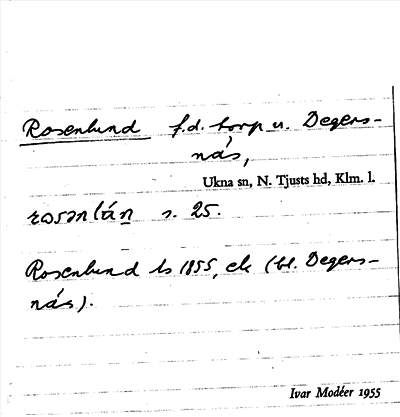 Rosenlund f.d. torp u. Degers-
näs,
Ukna sn, N. Tjusts hd, Klm. l.
s. 25.
Rosenlund ls 1855, ek (bl. Degers-
näs).
Ivar Modéer 1955